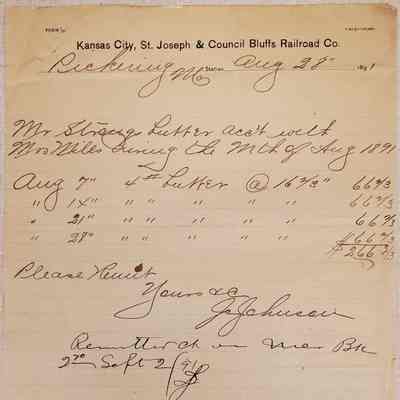 Kansas City, St. Joseph & Council Bluffs Railroad Co.
Pickering Mo Station Aug 28" 1891
Mr Strong butter acc't with
Mrs Miles during the Mth of Aug 1891
Aug 7" 4 # butter @ 16 2/3" 66 2/3
" 14" " " " " " 66 2/3
" 21" " " " " " 66 2/3
" 28" " " " " " 66 2/3
$ 266 2/3
Please Remit
Yours &c
J. Johnson
Remitted ch on
2 70 Sept 2/91